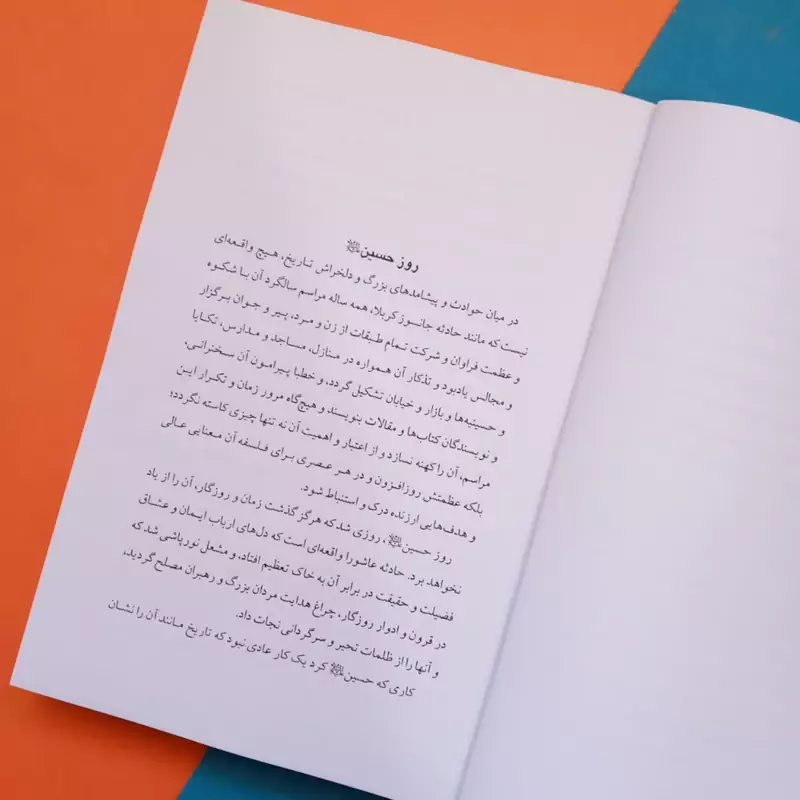 روز حسین﷣
در میان حوادث و پیشامدهای بزرگ و دلخراش تاریخ، هیچ واقعه‌ای
نیست که مانند حادثه جانسوز کربلا، همه ساله مراسم سالگرد آن با شکوه
و عظمت فراوان و شرکت تمام طبقات از زن و مرد، پیر و جوان برگزار
و مجالس یادبود و تذکار آن همواره در منازل، مساجد و مدارس، تکایا
و حسینیه‌ها و بازار و خیابان تشکیل گردد، و خطبا پیرامون آن سخنرانی،
و نویسندگان کتاب‌ها و مقالات بنویسند و هیچ‌گاه مرور زمان و تکرار این
مراسم، آن را کهنه نسازد و از اعتبار و اهمیت آن نه تنها چیزی کاسته نگردد؛
بلکه عظمتش روزافزون و در هر عصری برای فلسفه آن معنایی عالی
و هدف‌هایی ارزنده درک و استنباط شود.
روز حسین﷣، روزی شد که هرگز گذشت زمان و روزگار، آن را از یاد
نخواهد برد. حادثه عاشورا واقعه‌ای است که دل‌های ارباب ایمان و عشاق
فضیلت و حقیقت در برابر آن به خاک تعظیم افتاد، و مشعل نورپاشی شد که
در قرون و ادوار روزگار، چراغ هدایت مردان بزرگ و رهبران مصلح گردید،
و آنها را از ظلمات تحیر و سرگردانی نجات داد.
کاری که حسین﷣ کرد یک کار عادی نبود که تاریخ مانند آن را نشان